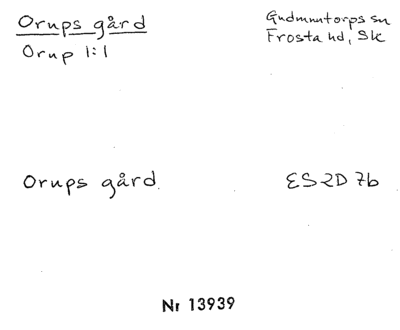 Orups gård
Gudmuntorps sn
Orup 1:1
Frosta hd, Sk
Orups gård
ES2D 7b
Nr 13939